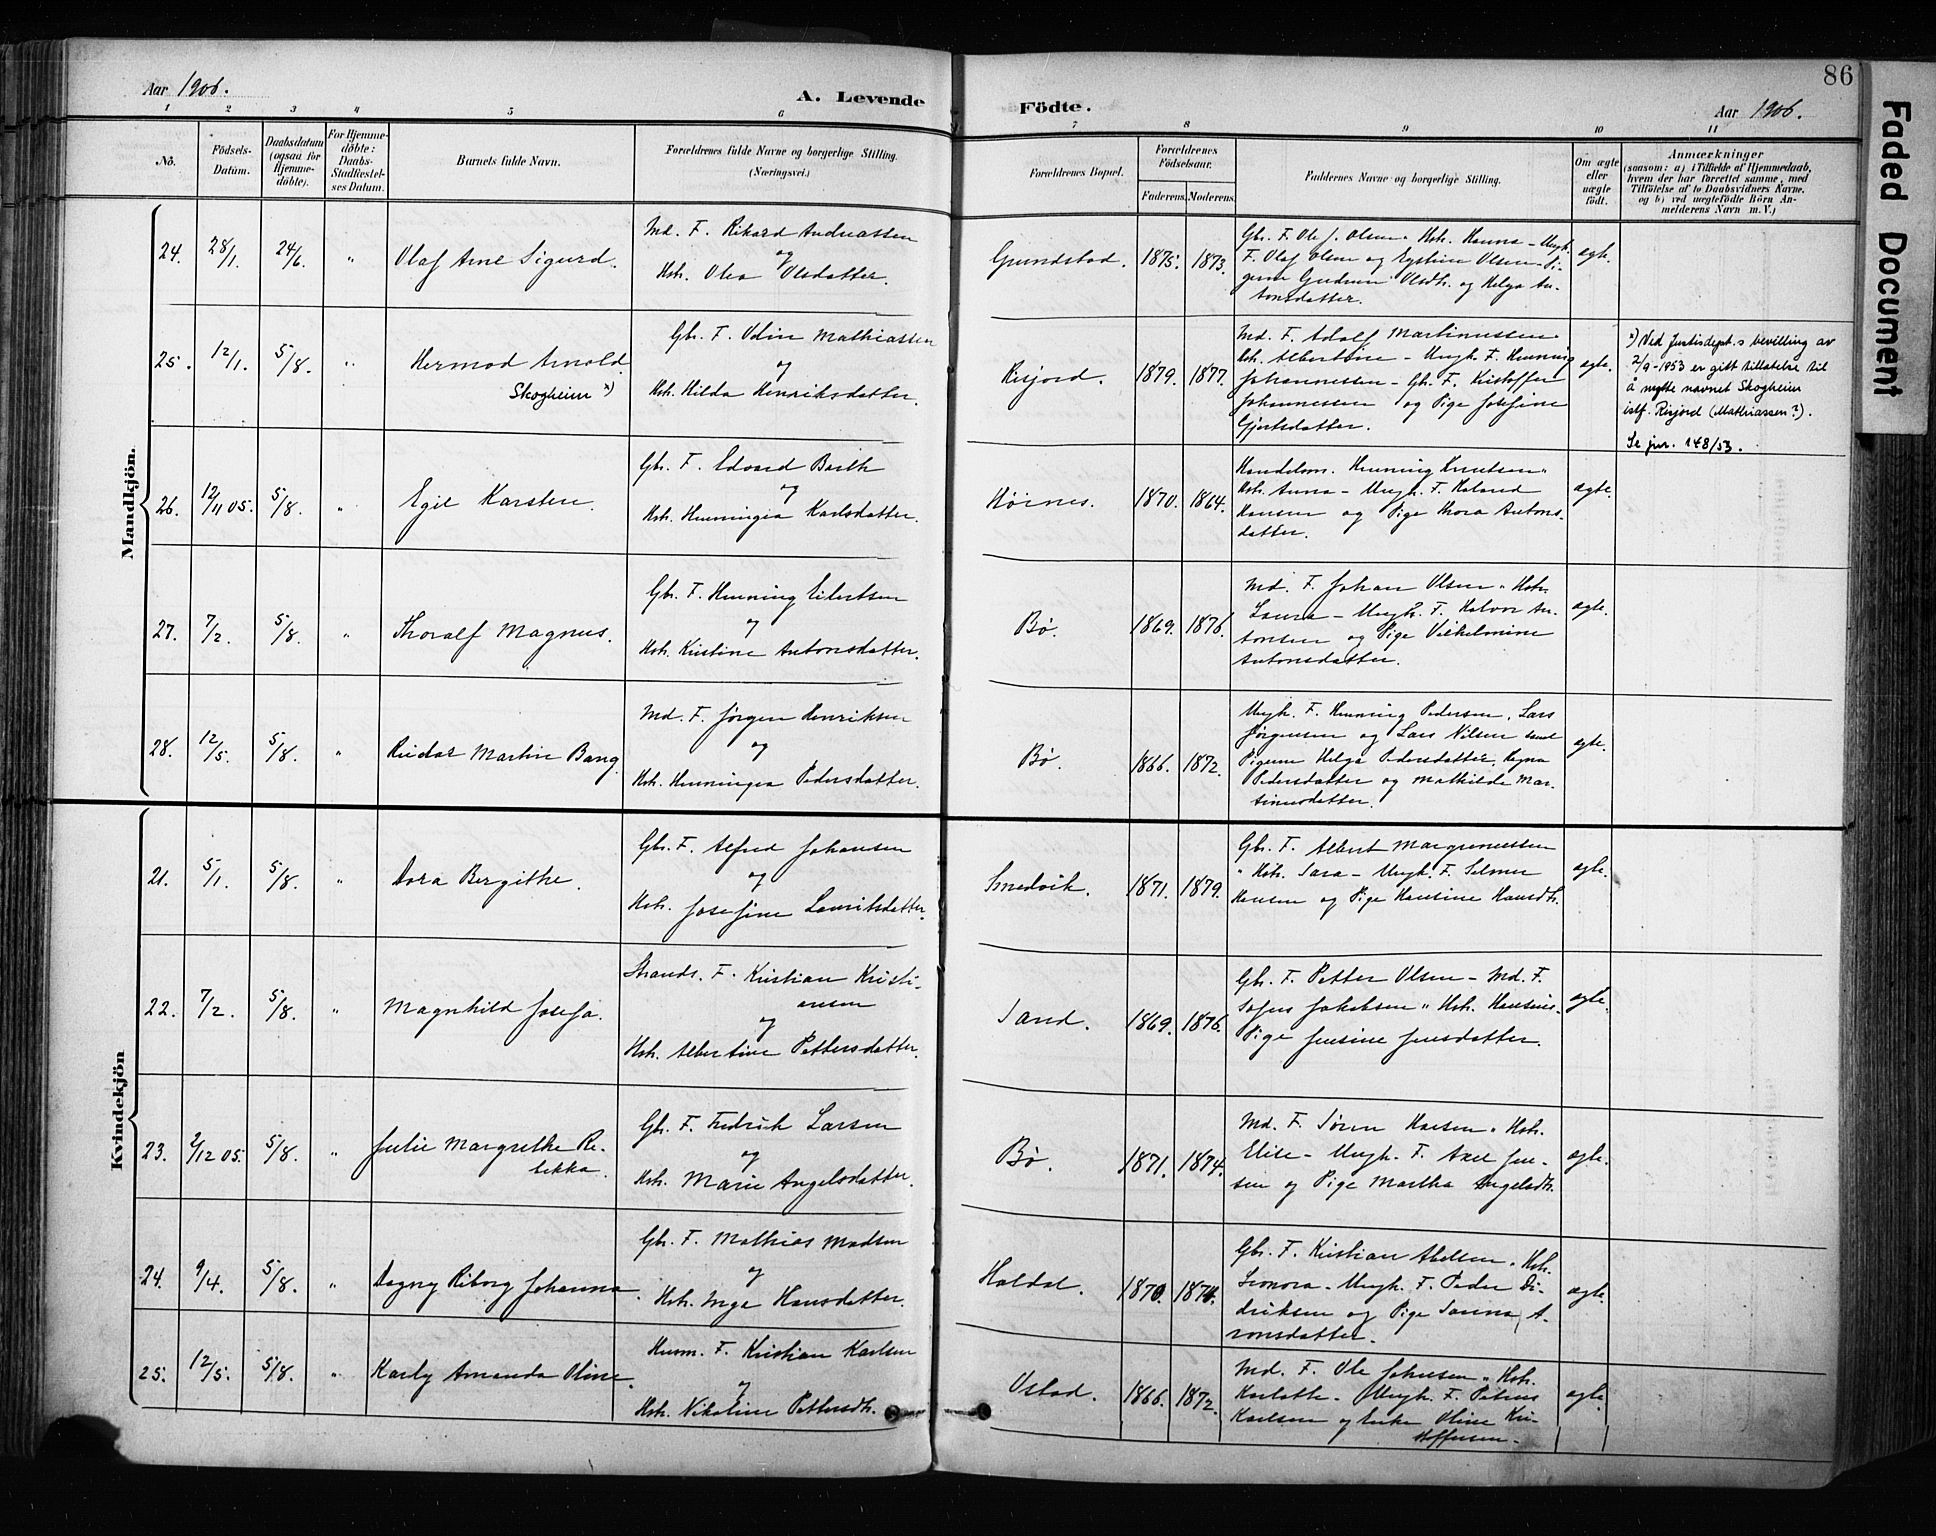 86
Aar 1906.
A. Levende Födte.
Aar 1906.
1 2 3 4 5 6 7 8 9 10 11
No.
Födsels-Datum.
Daabsdatum (ogsaa for Hjemme-döbte).
For Hjemme-döbte: Daabs-Stadfæstel-ses Datum.
Barnets fulde Navn.
Forældrenes fulde Navne og borgerlige Stilling.
(Næringsvei.)
Forældrenes Bopæl.
Forældrenes Födselsaar.
Faderens. Moderens.
Faddernes Navne og borgerlige Stilling.
Om ægte eller uægte födt.
Anmærkninger
(saasom: a) i Tilfælde af Hjemmedaab,
hvem der har forrettet samme, med
Tilföielse af to Daabsvidners Navne.
og b) ved uægtefödte Börn An-
melderens Navn m. V.)
Mandkjön.
24. 28/1. 24/6. " Olaf Arne Sigurd.
Md. F. Rikard Andreassen
og
Hstr. Olea Olsdatter.
Grundstad. 1875. 1873.
Gbr. F. Ole J. Olsen " Hstr. Hanna - Ungk.
F. Olaf Olsen og Eystein Olsen Pi-
gerne Gudrun Olsdtr. og Helga An-
tonsdatter.
ægte.
25. 12/1. 5/8. " Hermod Arnold
Skogheim x)
Gbr. F. Odin Mathiassen
og
Hstr. Hilda Henriksdatter.
Risjord. 1879. 1877.
Md. F. Adolf Martinussen
Hstr. Albertine - Ungk. F. Henning
Johannessen - Gbr. F. Kristoffer
Johannessen og Pige Josefine
Gjertsdatter.
ægte.
x) Ved Justisdept.s bevilling av
2/9-1953 er gitt tillatelse til
å nytte navnet Skogheim
istf. Risjord (Mathiassen?).
Se jnr. 148/53.
26. 12/11 05. 5/8. " Egil Karsten.
Gbr. F. Edvard Barth
og
Hstr. Henningea Karlsdatter.
Hørnes. 1870. 1864.
Handelsm. Henning Knutsen "
Hstr. Anna - Ungk. F. Roland
Hansen og Pige Thora Antons-
datter.
ægte.
27. 7/2. 5/8. " Thoralf Magnus.
Gbr. F. Henning Eilertsen
og
Hstr. Kristine Antonsdatter.
Bø. 1869. 1876.
Md. F. Johan Olsen " Hstr.
Laura - Ungk. F. Halvor An-
tonsen og Pige Vilhelmine
Antonsdatter.
ægte.
28. 12/5. 5/8. " Reidar Martin Bang.
Md. F. Jørgen Henriksen
og
Hstr. Henningea Pedersdatter.
Bø. 1866. 1872.
Ungk. F. Henning Pedersen, Lars
Jørgensen og Lars Nilsen samt
Pigerne Helga Pedersdatter, Ragna
Pedersdatter og Mathilde Mar-
tinusdatter.
ægte.
Kvindekjön
21. 5/1. 5/8. " Dora Bergithe.
Gbr. F. Alfred Johansen
og
Hstr. Josefine Lauritsdatter.
Smedvik. 1871. 1879.
Gbr. F. Albert Margreniussen
" Hstr. Sara - Ungk. F. Selmer
Hansen og Pige Hansine Hansdtr.
ægte.
22. 7/2. 5/8. " Magnhild Josefa.
Strands. F. Kristian Kristi-
ansen
og
Hstr. Albertine Pettersdatter.
Sand. 1869. 1876.
Gbr. F. Petter Olsen - Md. F.
Sofus Jakobsen " Hstr. Hansine -
Pige Jensine Jensdatter.
ægte.
23. 2/12 05. 5/8. " Julie Margrethe Re-
bekka.
Gbr. F. Fredrik Larsen
og
Hstr. Marie Angelsdatter.
Bø. 1871. 1874.
Md. F. Søren Hansen " Hstr.
Elise - Ungk. F. Axel Jen-
sen og Pige Martha Angelsdtr.
ægte.
24. 9/4. 5/8. " Dagny Riborg Johanna.
Gbr. F. Mathias Madsen
og
Hstr. Inga Hansdatter.
Haldal. 1870. 1874.
Gbr. F. Kristian Abelsen " Hstr.
Leonora - Ungk. F. Peder Di-
driksen og Pige Sanna A-
ronsdatter.
ægte.
25. 12/5. 5/8. " Karly Amanda Oline.
Husm. F. Kristian Karlsen
og
Hstr. Nikoline Pettersdtr.
Ustad. 1866. 1872.
Md. F. Ole Johnsen " Hstr.
Karlotte - Ungk. F. Petrus
Karlsen og Enke Oline Kri-
stoffersen -
ægte.
Faded Document